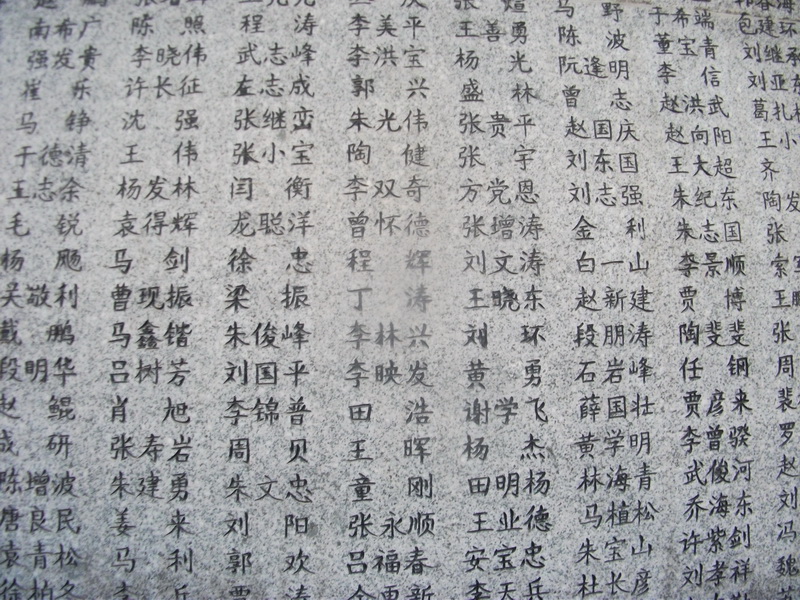 南布广 陈照 程涛 李美平 王善勇 陈波 于希端
强发贵 李晓伟 武志峰 李洪宝 杨光 阮逢明 董宝青
崔乐 许长征 左志成 郭兴 盛林 曾志 李信 刘继承
马铮 沈强 张继峦 朱光伟 张贵平 赵国庆 赵洪武 刘亚东
于德清 王伟 张小宝 陶健 张宇 刘东国 赵向阳 葛扎
王志余 杨发林 闫衡 李双奇 方党恩 刘志强 王大超 王小
毛锐 袁得辉 龙聪洋 曾怀德 张增涛 金利 朱纪东 齐
杨飏 马剑 徐忠 程辉 刘文涛 白一山 朱志国 陶发
吴敬利 曹现振 梁振 丁涛 王晓东 赵新建 李景顺 张
戴鹏 马鑫锴 朱俊峰 李林兴 刘环 段朋涛 贾博 索军
段明华 吕树芳 刘国平 李映发 黄勇 石岩峰 陶斐斐 王鹏
赵鲲 肖旭 李锦普 田浩 谢学飞 薛国壮 任钢 张
成研 张寿岩 周贝 王晖 杨杰 黄学明 贾彦来 周
陈增波 朱建勇 朱文忠 童刚 田明杨 林海青 李曾骙 裴
唐良民 姜来 刘阳 张永顺 王业德 马植松 武俊河 罗
袁青松 马利 郭欢 吕福春 安宝忠 朱宝山 乔海东 赵
徐柏冬 李天兵 杜长彦 许紫剑 刘
刘孝祥 冯
魏